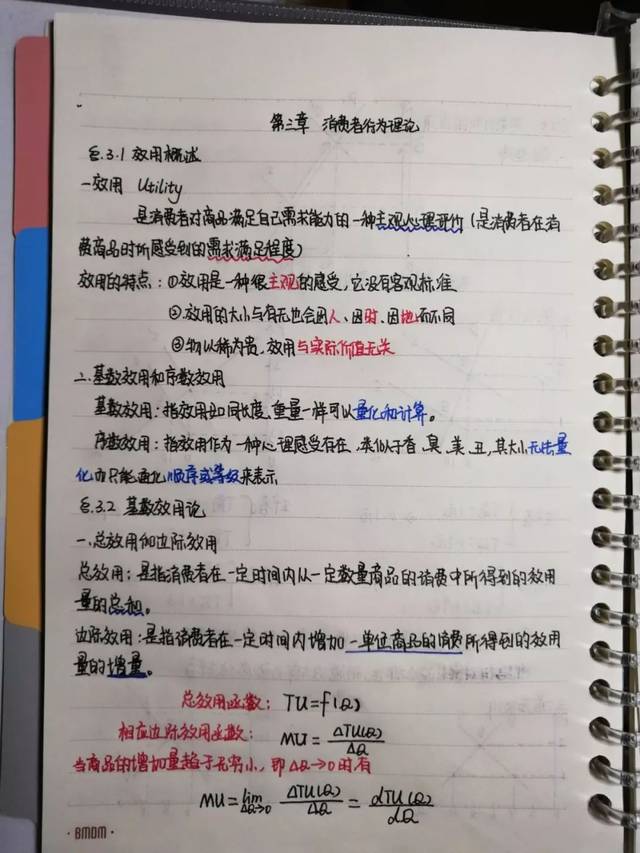 第三章 消费者行为理论
§.3.1 效用概述
一效用 Utility
是消费者对商品满足自己需求能力的一种主观心理评价(是消费者在消
费商品时所感受到的需求满足程度)
效用的特点:①效用是一种很主观的感受,它没有客观标准
②.效用的大小与有无也会因人、因时、因地而不同
③物以稀为贵,效用与实际价值无关
二.基数效用和序数效用
基数效用:指效用如同长度、重量一样可以量化和计算。
序数效用:指效用作为一种心理感受存在,类似于香、臭、美、丑,其大小无法量
化而只能通化顺序或等级来表示
§.3.2 基数效用论
一.总效用和边际效用
总效用:是指消费者在一定时间内从一定数量商品的消费中所得到的效用
量的总和。
边际效用:是指消费者在一定时间内增加一单位商品的消费所得到的效用
量的增量。
总效用函数: TU=f(Q)
相应边际效用函数: MU = ΔTU(Q)/ΔQ
当商品的增加量趋于无穷小,即ΔQ→0时有
MU = lim ΔQ→0 ΔTU(Q)/ΔQ = dTU(Q)/dQ
·BMDM·